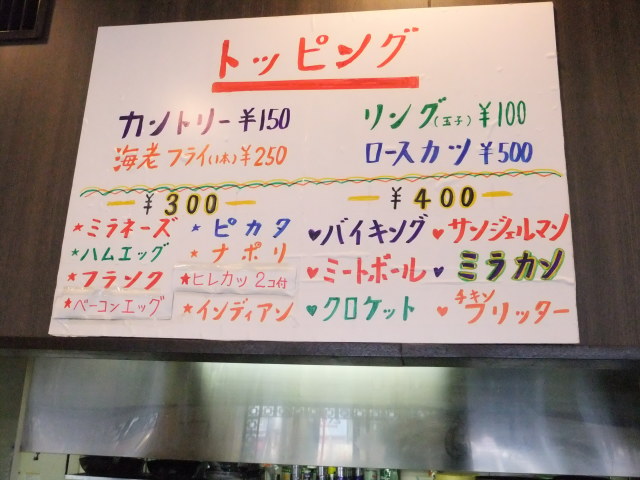 トッピング
カントリー ¥150 リング(玉子) ¥100
海老フライ(1本) ¥250 ロースカツ ¥500
¥300 ¥400
★ミラネーズ ★ピカタ ♥バイキング ♥サンジェルマン
★ハムエッグ ★ナポリ ♥ミートボール ♥ミラカン
★フランク ★ヒレカツ 2コ付 ♥クロケット ♥チキンフリッター
★ベーコンエッグ ★インディアン